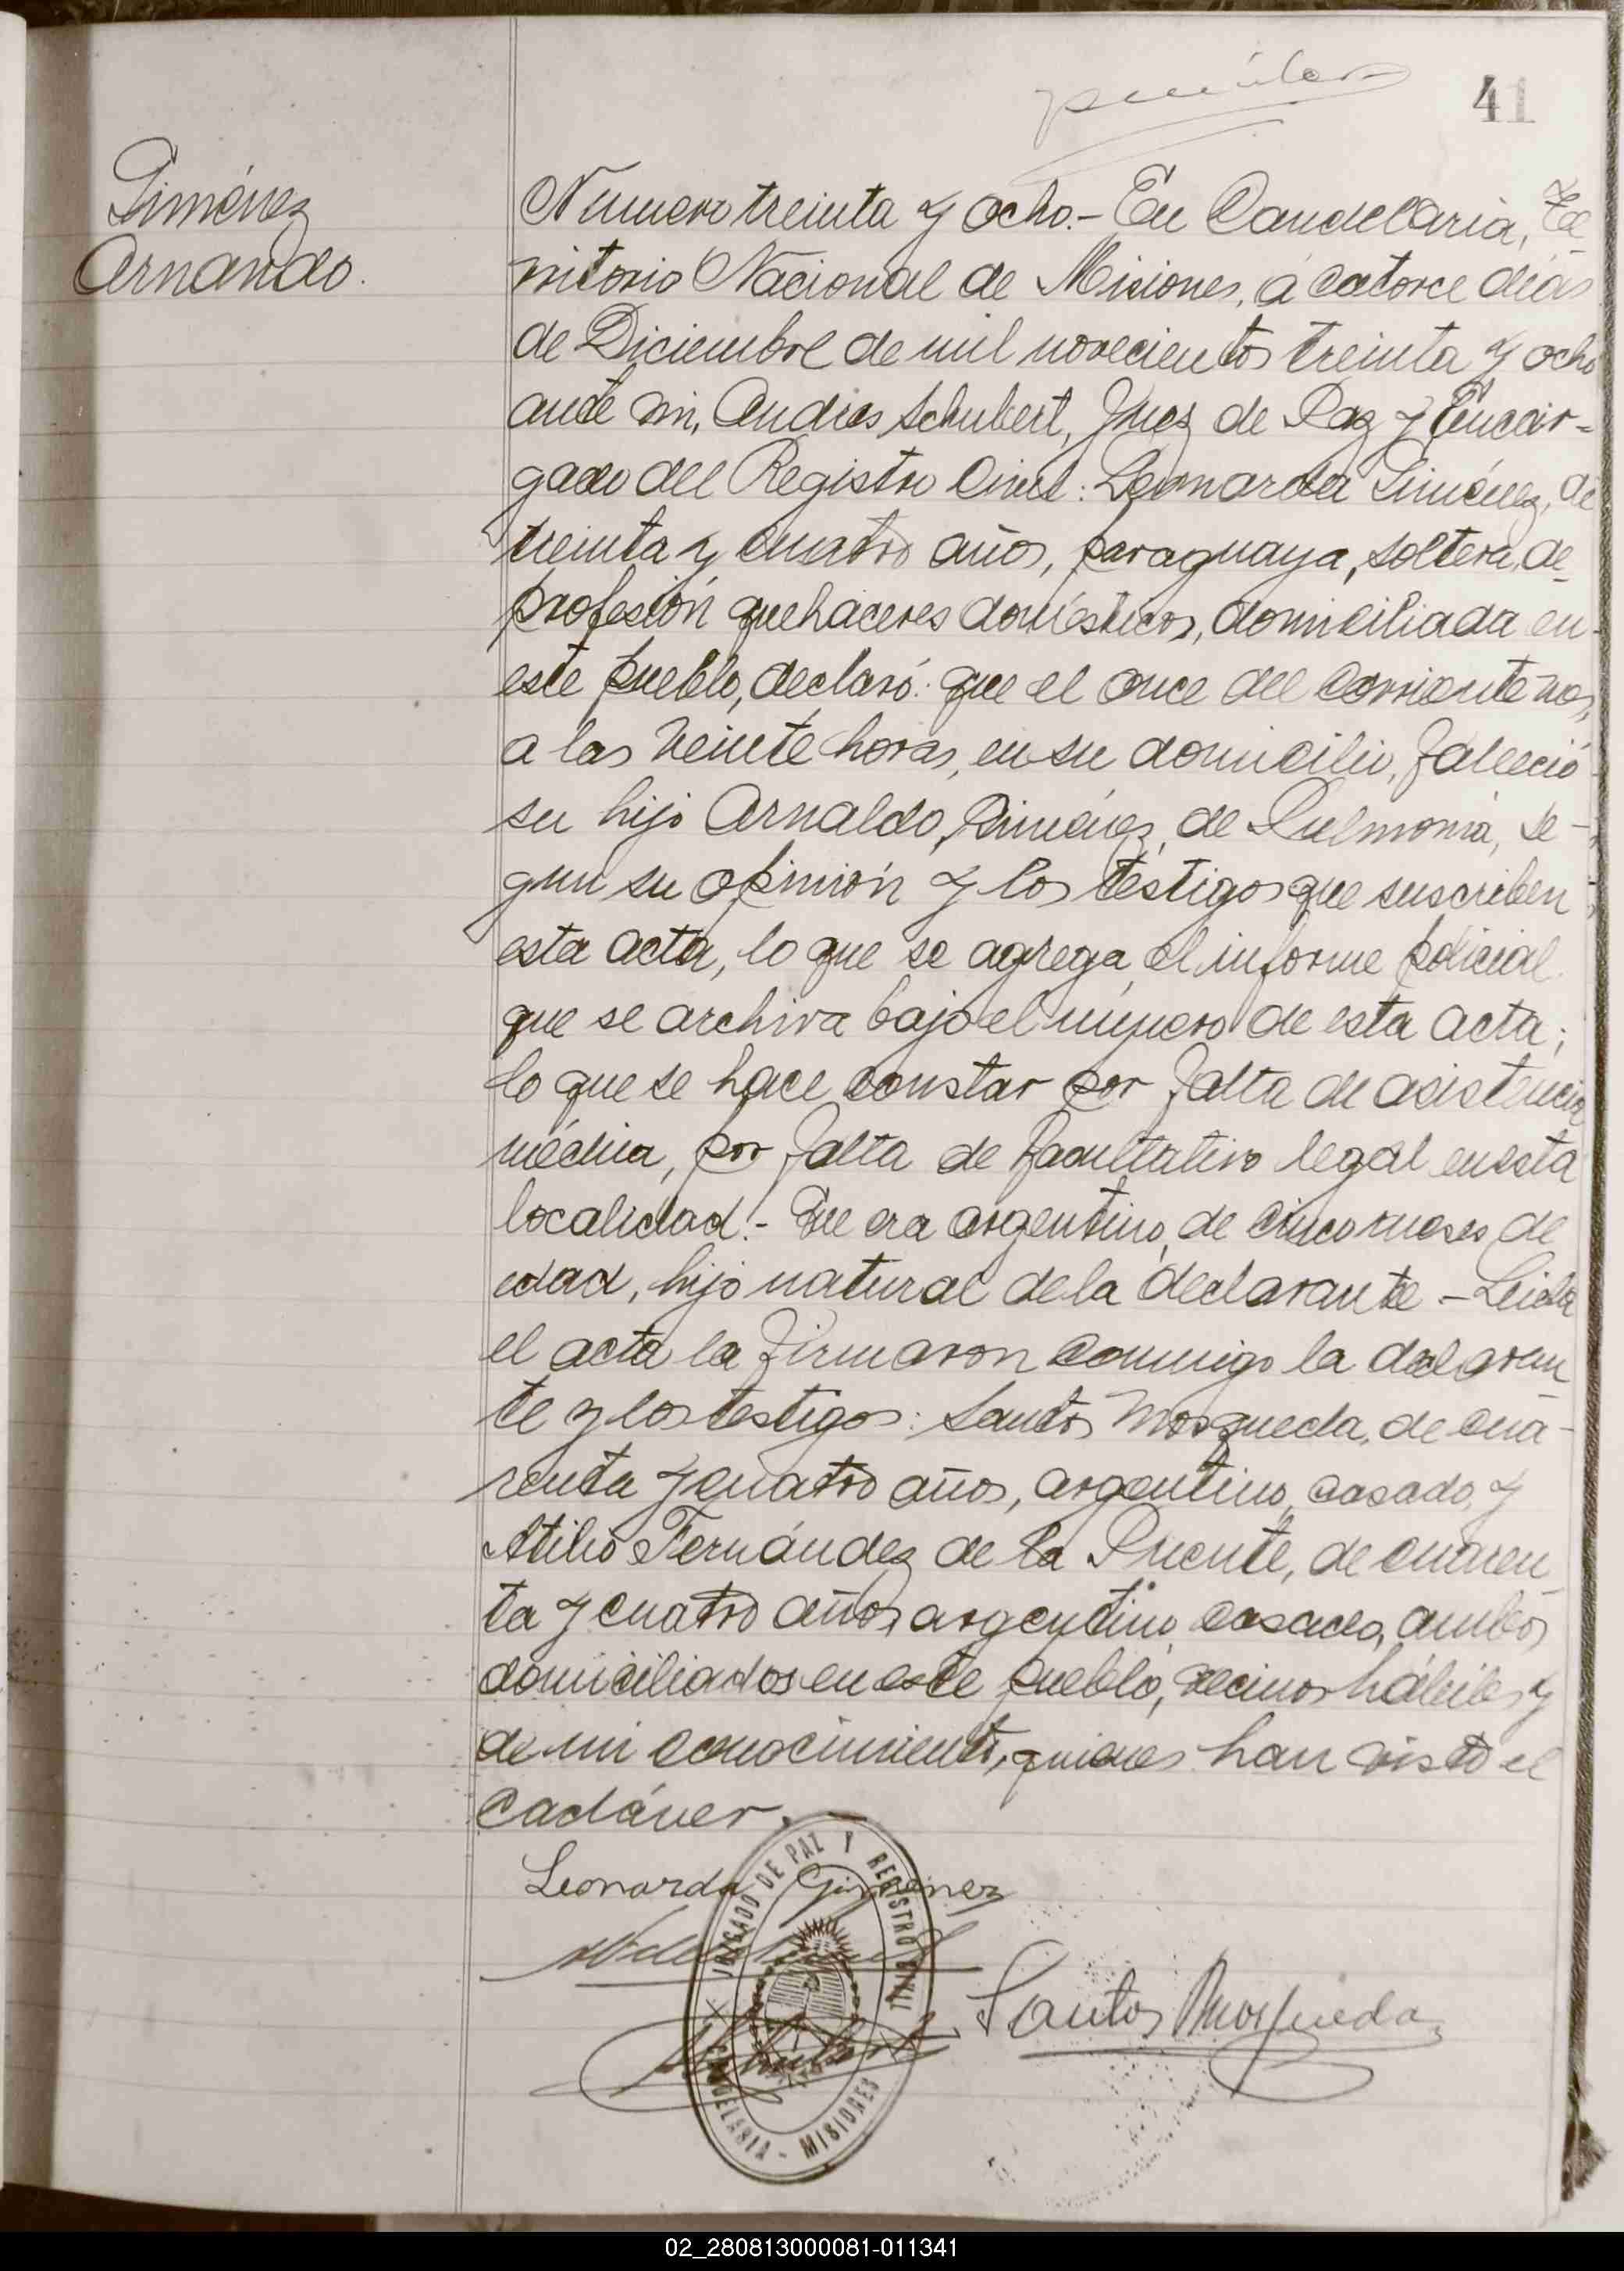 41
Giménez
Arnando.
Numero treinta y ocho.- En Candelaria, Te-
rritorio Nacional de Misiones, á catorce dias
de Diciembre de mil novecientos treinta y ocho
ante mi, Andres Schubert, Juez de Paz y Encar-
gado del Registro Civil: Leonarda Giménez, de
treinta y cuatro años, paraguaya, soltera, de
profesión quehaceres domésticos, domiciliada en
este pueblo, declaró: que el once del corriente mes,
a las veinte horas, en su domicilio, falleció
su hijo Arnaldo Giménez, de Pulmonia, se-
gun su opinión y los testigos que suscriben
esta acta, lo que se agrega el informe policial
que se archiva bajo el número de esta acta;
lo que se hace constar por falta de asistencia
médica, por falta de facultativo legal en esta
localidad.- Que era argentino, de cinco meses de
edad, hijo natural de la declarante - Leida
el acta la firmaron conmigo la declaran-
te y los testigos: Santos Mosqueda, de cua-
renta y cuatro años, argentino, casado, y
Atilio Fernández de la Puente, de cuaren-
ta y cuatro años argentino, casado, ambos
domiciliados en este pueblo, vecinos hábiles y
de mi conocimiento, quienes han visto el
Cadáver.
Leonarda Gimenez
Santos Mosqueda
JUZGADO DE PAZ Y REGISTRO CIVIL
CANDELARIA - MISIONES
02_280813000081-011341